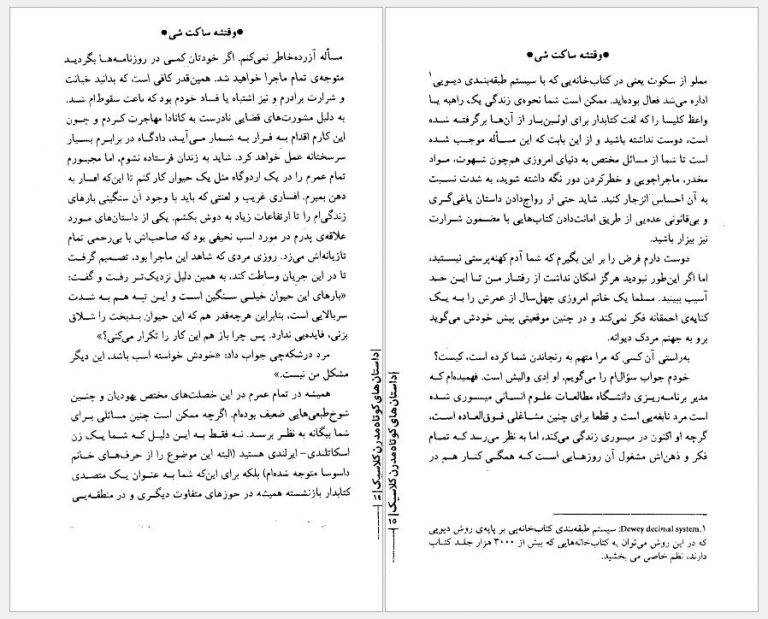 ●وقتشه ساکت شی●
مسأله آزرده‌خاطر نمی‌کنم. اگر خودتان کمی در روزنامه‌ها بگردید
متوجه‌ی تمام ماجرا خواهید شد. همین‌قدر کافی است که بدانید خباثت
و شرارت برادرم و نیز اشتباه یا فساد خودم بود که باعث سقوط‌ام شد.
به دلیل مشورت‌های قضایی نادرست به کانادا مهاجرت کردم و چون
این کارم اقدام به فرار به شمار می‌آید، دادگاه در برابرم بسیار
سرسختانه عمل خواهد کرد. شاید به زندان فرستاده نشوم، اما مجبورم
تمام عمرم را در یک اردوگاه مثل یک حیوان کار کنم تا این‌که افسار به
دهن بمیرم. افساری غریب و لعنتی که باید با وجود آن سنگینی بارهای
زندگی‌ام را تا ارتفاعات زیاد به دوش بکشم. یکی از داستان‌های مورد
علاقه‌ی پدرم در مورد اسب نحیفی بود که صاحب‌اش با بی‌رحمی تمام
تازیانه‌اش می‌زد. روزی مردی که شاهد این ماجرا بود، تصمیم گرفت
تا در این جریان وساطت کند، به همین دلیل نزدیک‌تر رفت و گفت:
«بارهای این حیوان خیلی سنگین است و این تپه هم به شدت
سربالایی است، بنابراین هرچه‌قدر هم که این حیوان بدبخت را شلاق
بزنی، فایده‌یی ندارد. پس چرا باز هم این کار را تکرار می‌کنی؟»
مرد درشکه‌چی جواب داد: «خودش خواسته اسب باشد، این دیگر
مشکل من نیست.»
همیشه در تمام عمرم در این خصلت‌های مختص یهودیان و چنین
شوخ‌طبعی‌هایی ضعیف بوده‌ام. اگرچه ممکن است چنین مسائلی برای
شما بیگانه به نظر برسد. نه فقط به این دلیل که شما یک زن
اسکاتلندی- ایرلندی هستید (البته این موضوع را از حرف‌های خانم
داسوسا متوجه شده‌ام) بلکه برای این‌که شما به عنوان یک متصدی
کتابدار بازنشسته همیشه در حوزهای متفاوت دیگری و در منطقه‌یی
|داستان‌های کوتاه مدرن کلاسیک|
●وقتشه ساکت شی●
مملو از سکوت یعنی در کتاب‌خانه‌یی که با سیستم طبقه‌بندی دیویی۱
اداره می‌شد فعال بوده‌اید. ممکن است شما نحوه‌ی زندگی یک راهبه یا
واعظ کلیسا را که لغت کتابدار برای اولین‌بار از آن‌ها برگرفته شده
است، دوست نداشته باشید و از این بابت که این مسأله موجب شده
است تا شما از مسائل مختص به دنیای امروزی هم‌چون شهوت، مواد
مخدر، ماجراجویی و خطرکردن دور نگه داشته شوید، به شدت نسبت
به آن احساس انزجار کنید. شاید حتی از رواج‌دادن داستان یاغی‌گری
و بی‌قانونی عده‌یی از طریق امانت‌دادن کتاب‌هایی با مضمون شرارت
نیز بیزار باشید.
دوست دارم فرض را بر این بگیرم که شما آدم کهنه‌پرستی نیستید،
اما اگر این‌طور نبودید هرگز امکان نداشت از رفتار من تا این حد
آسیب ببینید. مسلما یک خانم امروزی چهل‌سال از عمرش را به یک
کنایه‌ی احمقانه فکر نمی‌کند و در چنین موقعیتی پیش خودش می‌گوید
برو به جهنم مردک دیوانه.
به‌راستی آن کسی که مرا متهم به رنجاندن شما کرده است، کیست؟
خودم جواب سؤال‌ام را می‌گویم. او اِدی والیش است. فهمیده‌ام که
مدیر برنامه‌ریزی دانشگاه مطالعات علوم انسانی میسوری شده
است مرد نابغه‌یی است و قطعا برای چنین مشاغلی فوق‌العاده است،
گرچه او اکنون در میسوری زندگی می‌کند، اما به نظر می‌رسد که تمام
فکر و ذهن‌اش مشغول آن روزهایی است که همگی کنار هم در
۱.Dewey decimal system: سیستم طبقه‌بندی کتاب‌خانه‌یی بر پایه‌ی روش دیویی
که در این روش می‌توان به کتاب‌خانه‌هایی که بیش از ۳۰۰۰ هزار جلد کتاب
دارند، نظم خاصی می بخشید.
|داستان‌های کوتاه مدرن کلاسیک|